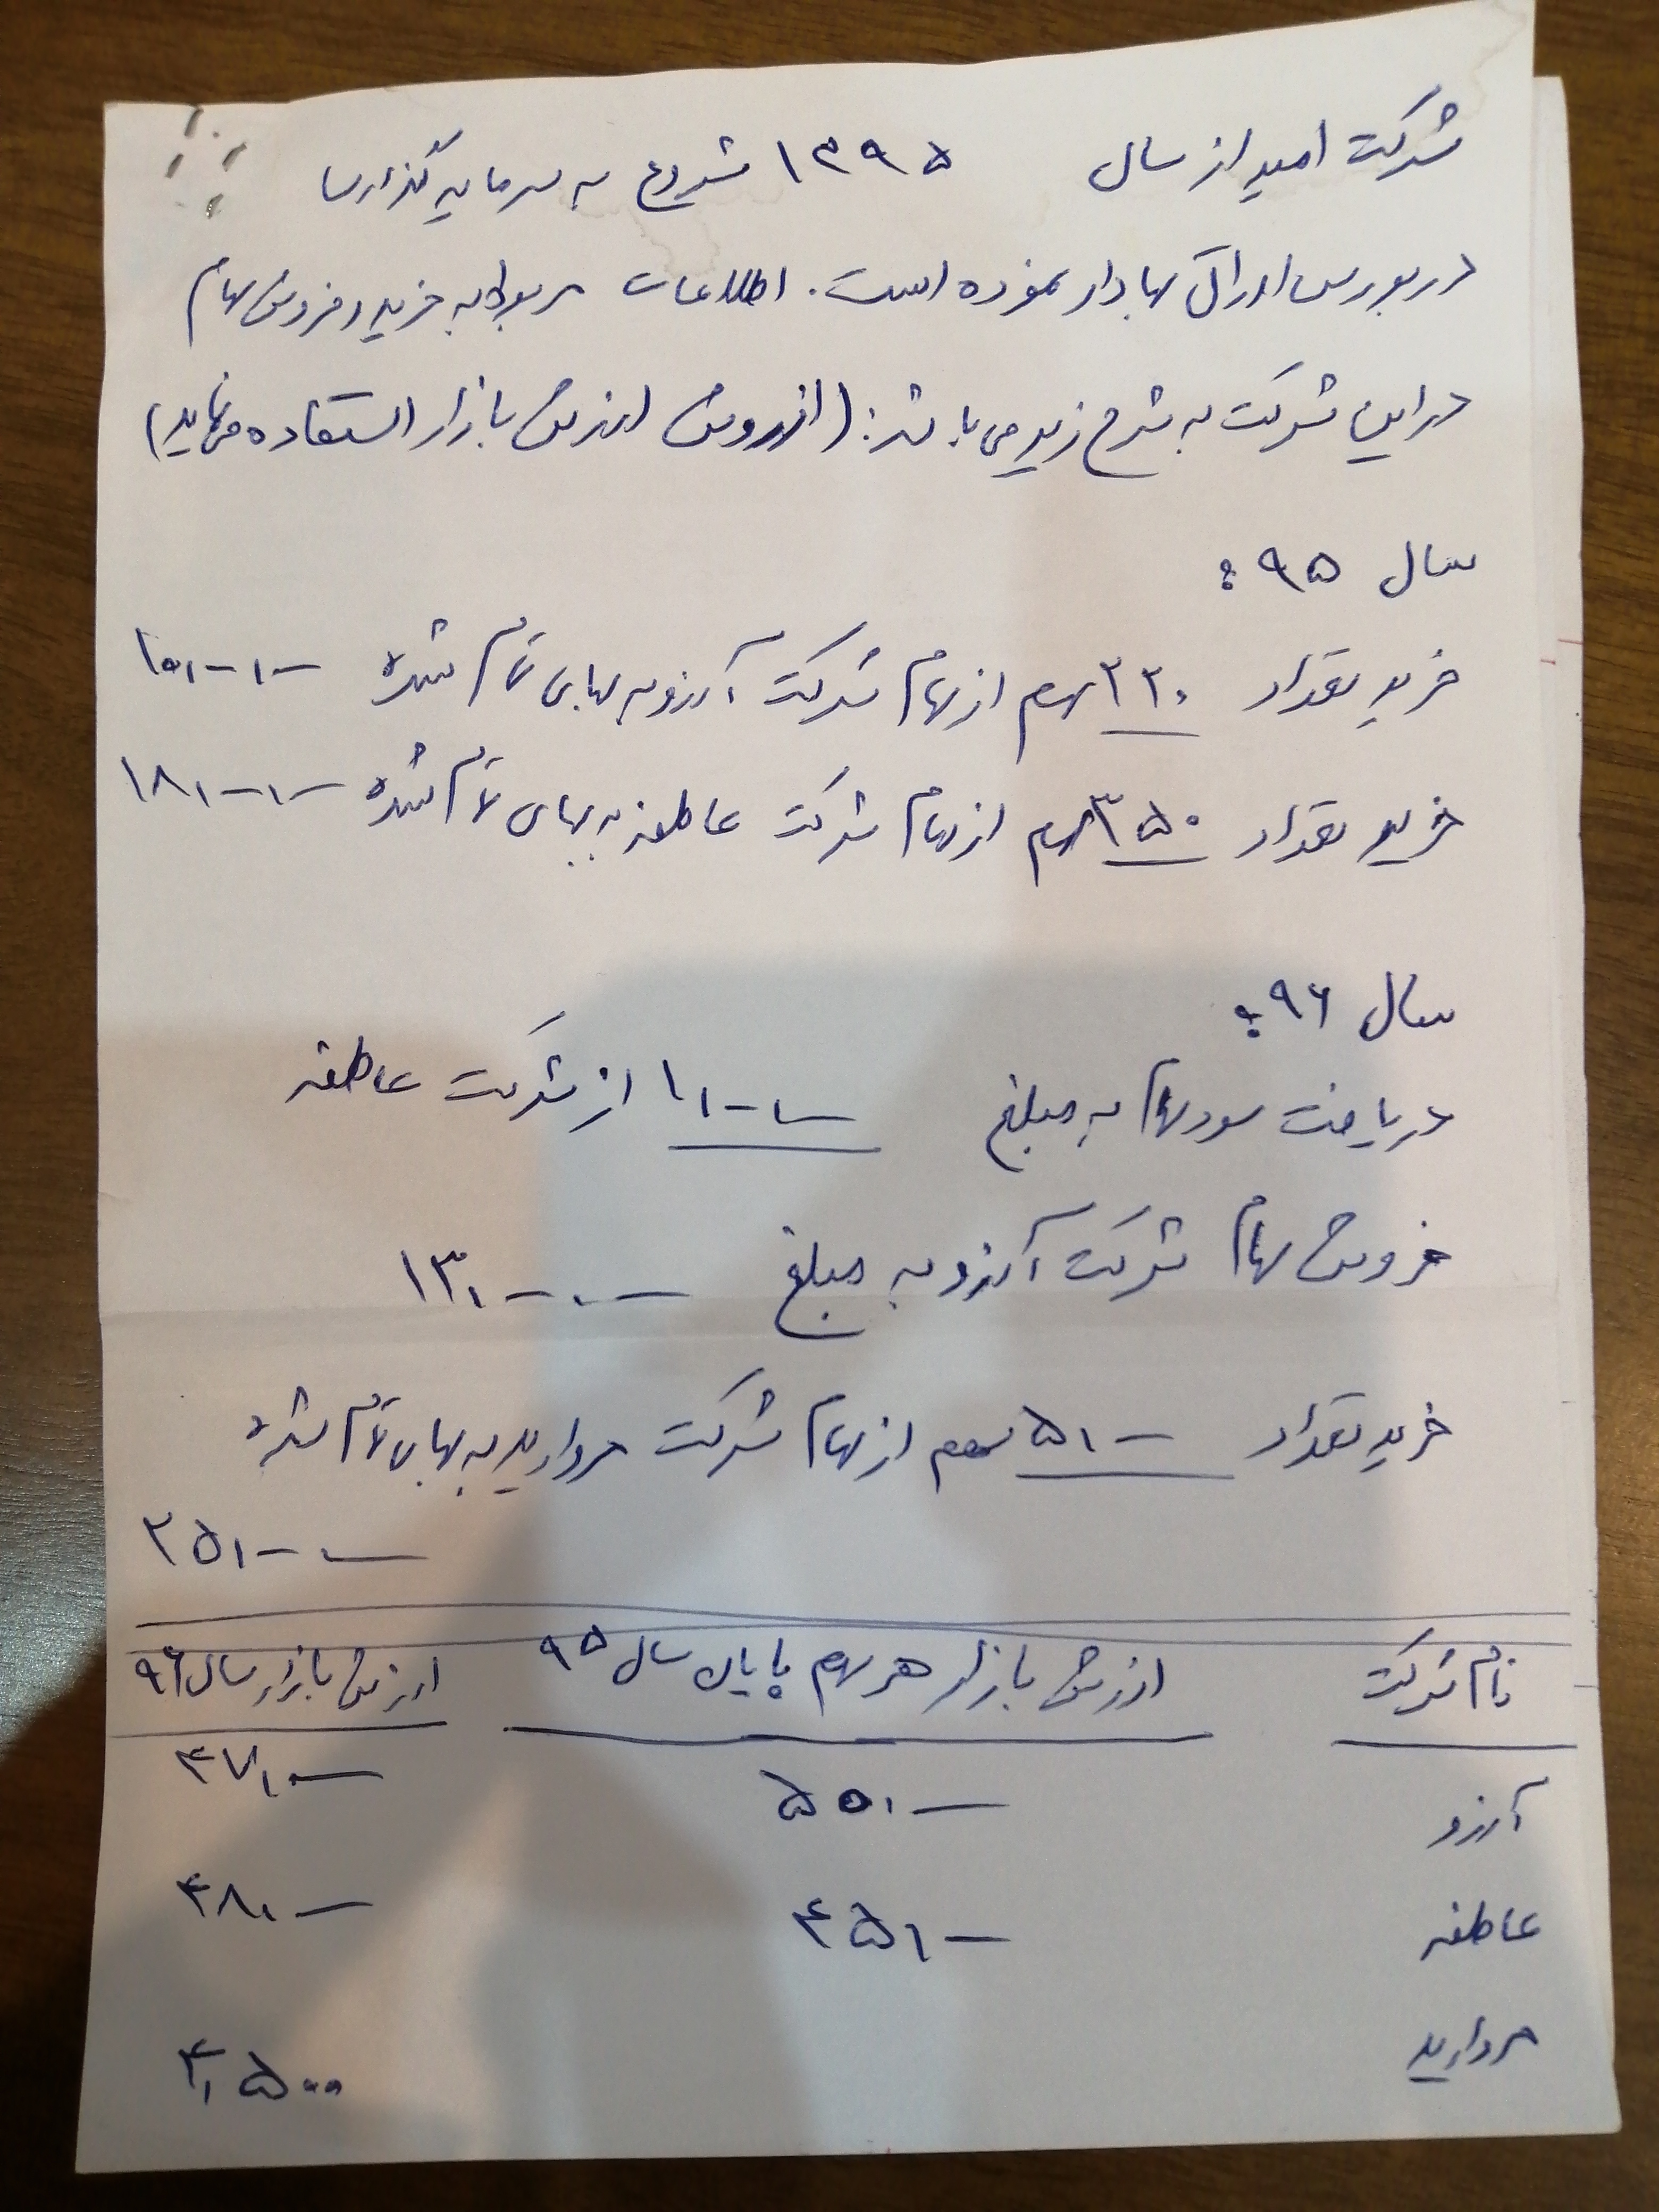 شرکت امید از سال ۱۳۹۵ شروع به سرمایه گذاری
در بورس اوراق بهادار نموده است. اطلاعات مربوط به خرید و فروش سهام
در این شرکت به شرح زیر می باشد: (از روش ارزش بازار استفاده می نماید)
سال ۹۵:
خرید تعداد ۲۲۰ سهم از سهام شرکت آرزو به بهای تمام شده
خرید تعداد ۳۵۰ سهم از سهام شرکت عاطفه به بهای تمام شده
سال ۹۶:
دریافت سود سهام به مبلغ از شرکت عاطفه
فروش سهام شرکت آرزو به مبلغ
خرید تعداد سهم از سهام شرکت مروارید به بهای تمام شده
نام شرکت ارزش بازار هر سهم پایان سال ۹۵ ارزش بازار سال ۹۶
آرزو
عاطفه
مروارید ۴,۵۰۰